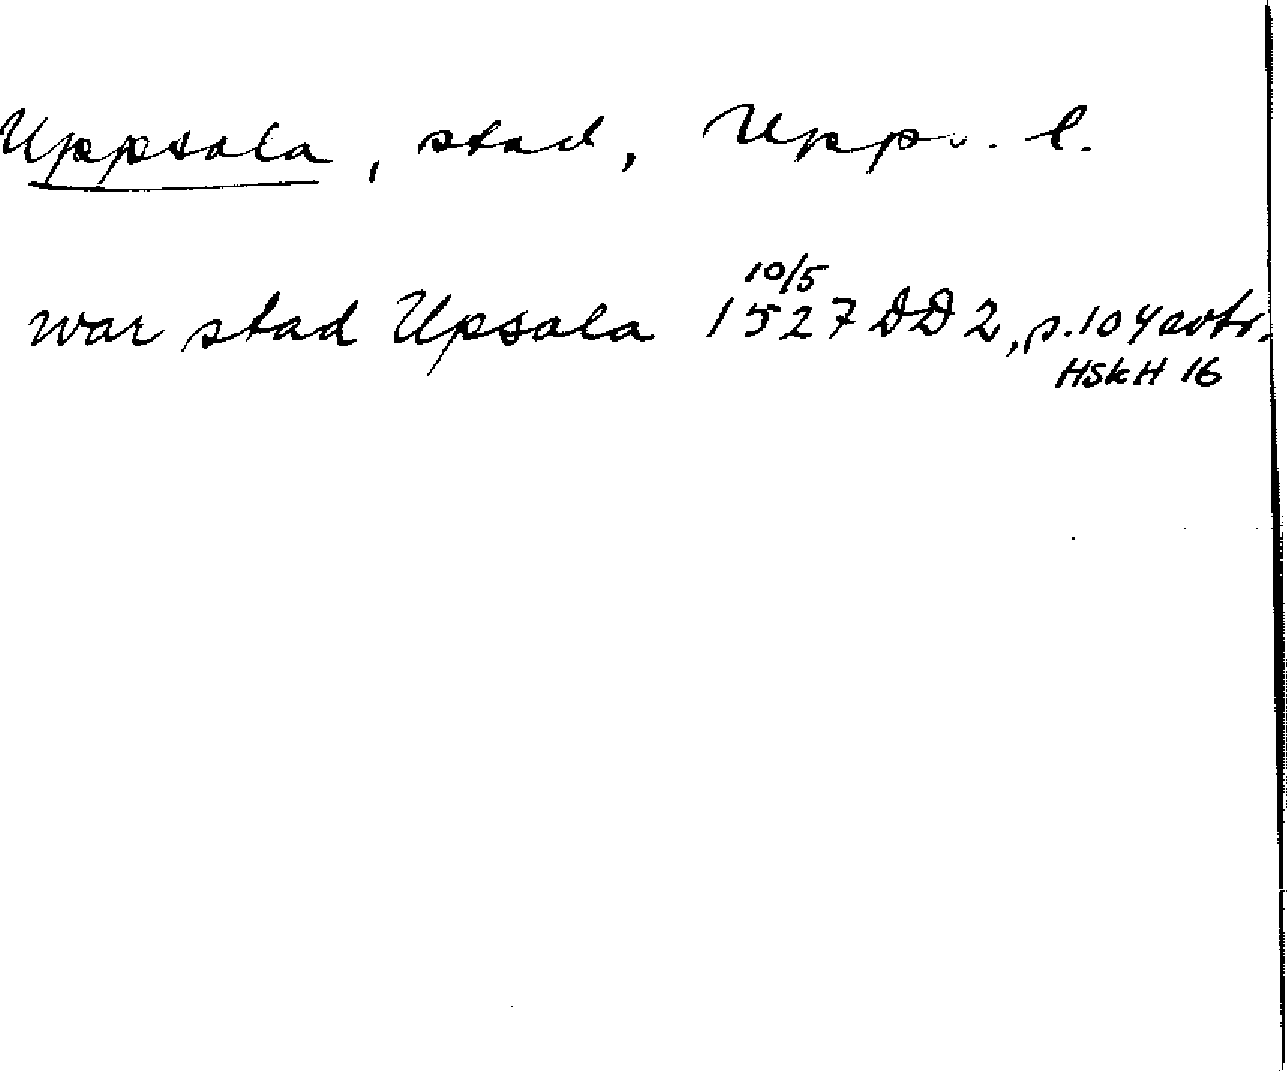 Uppsala, stad, Upps. l.
10/5
war stad Upsala 1527 DD 2, s. 104 avtr.
HSkH 16